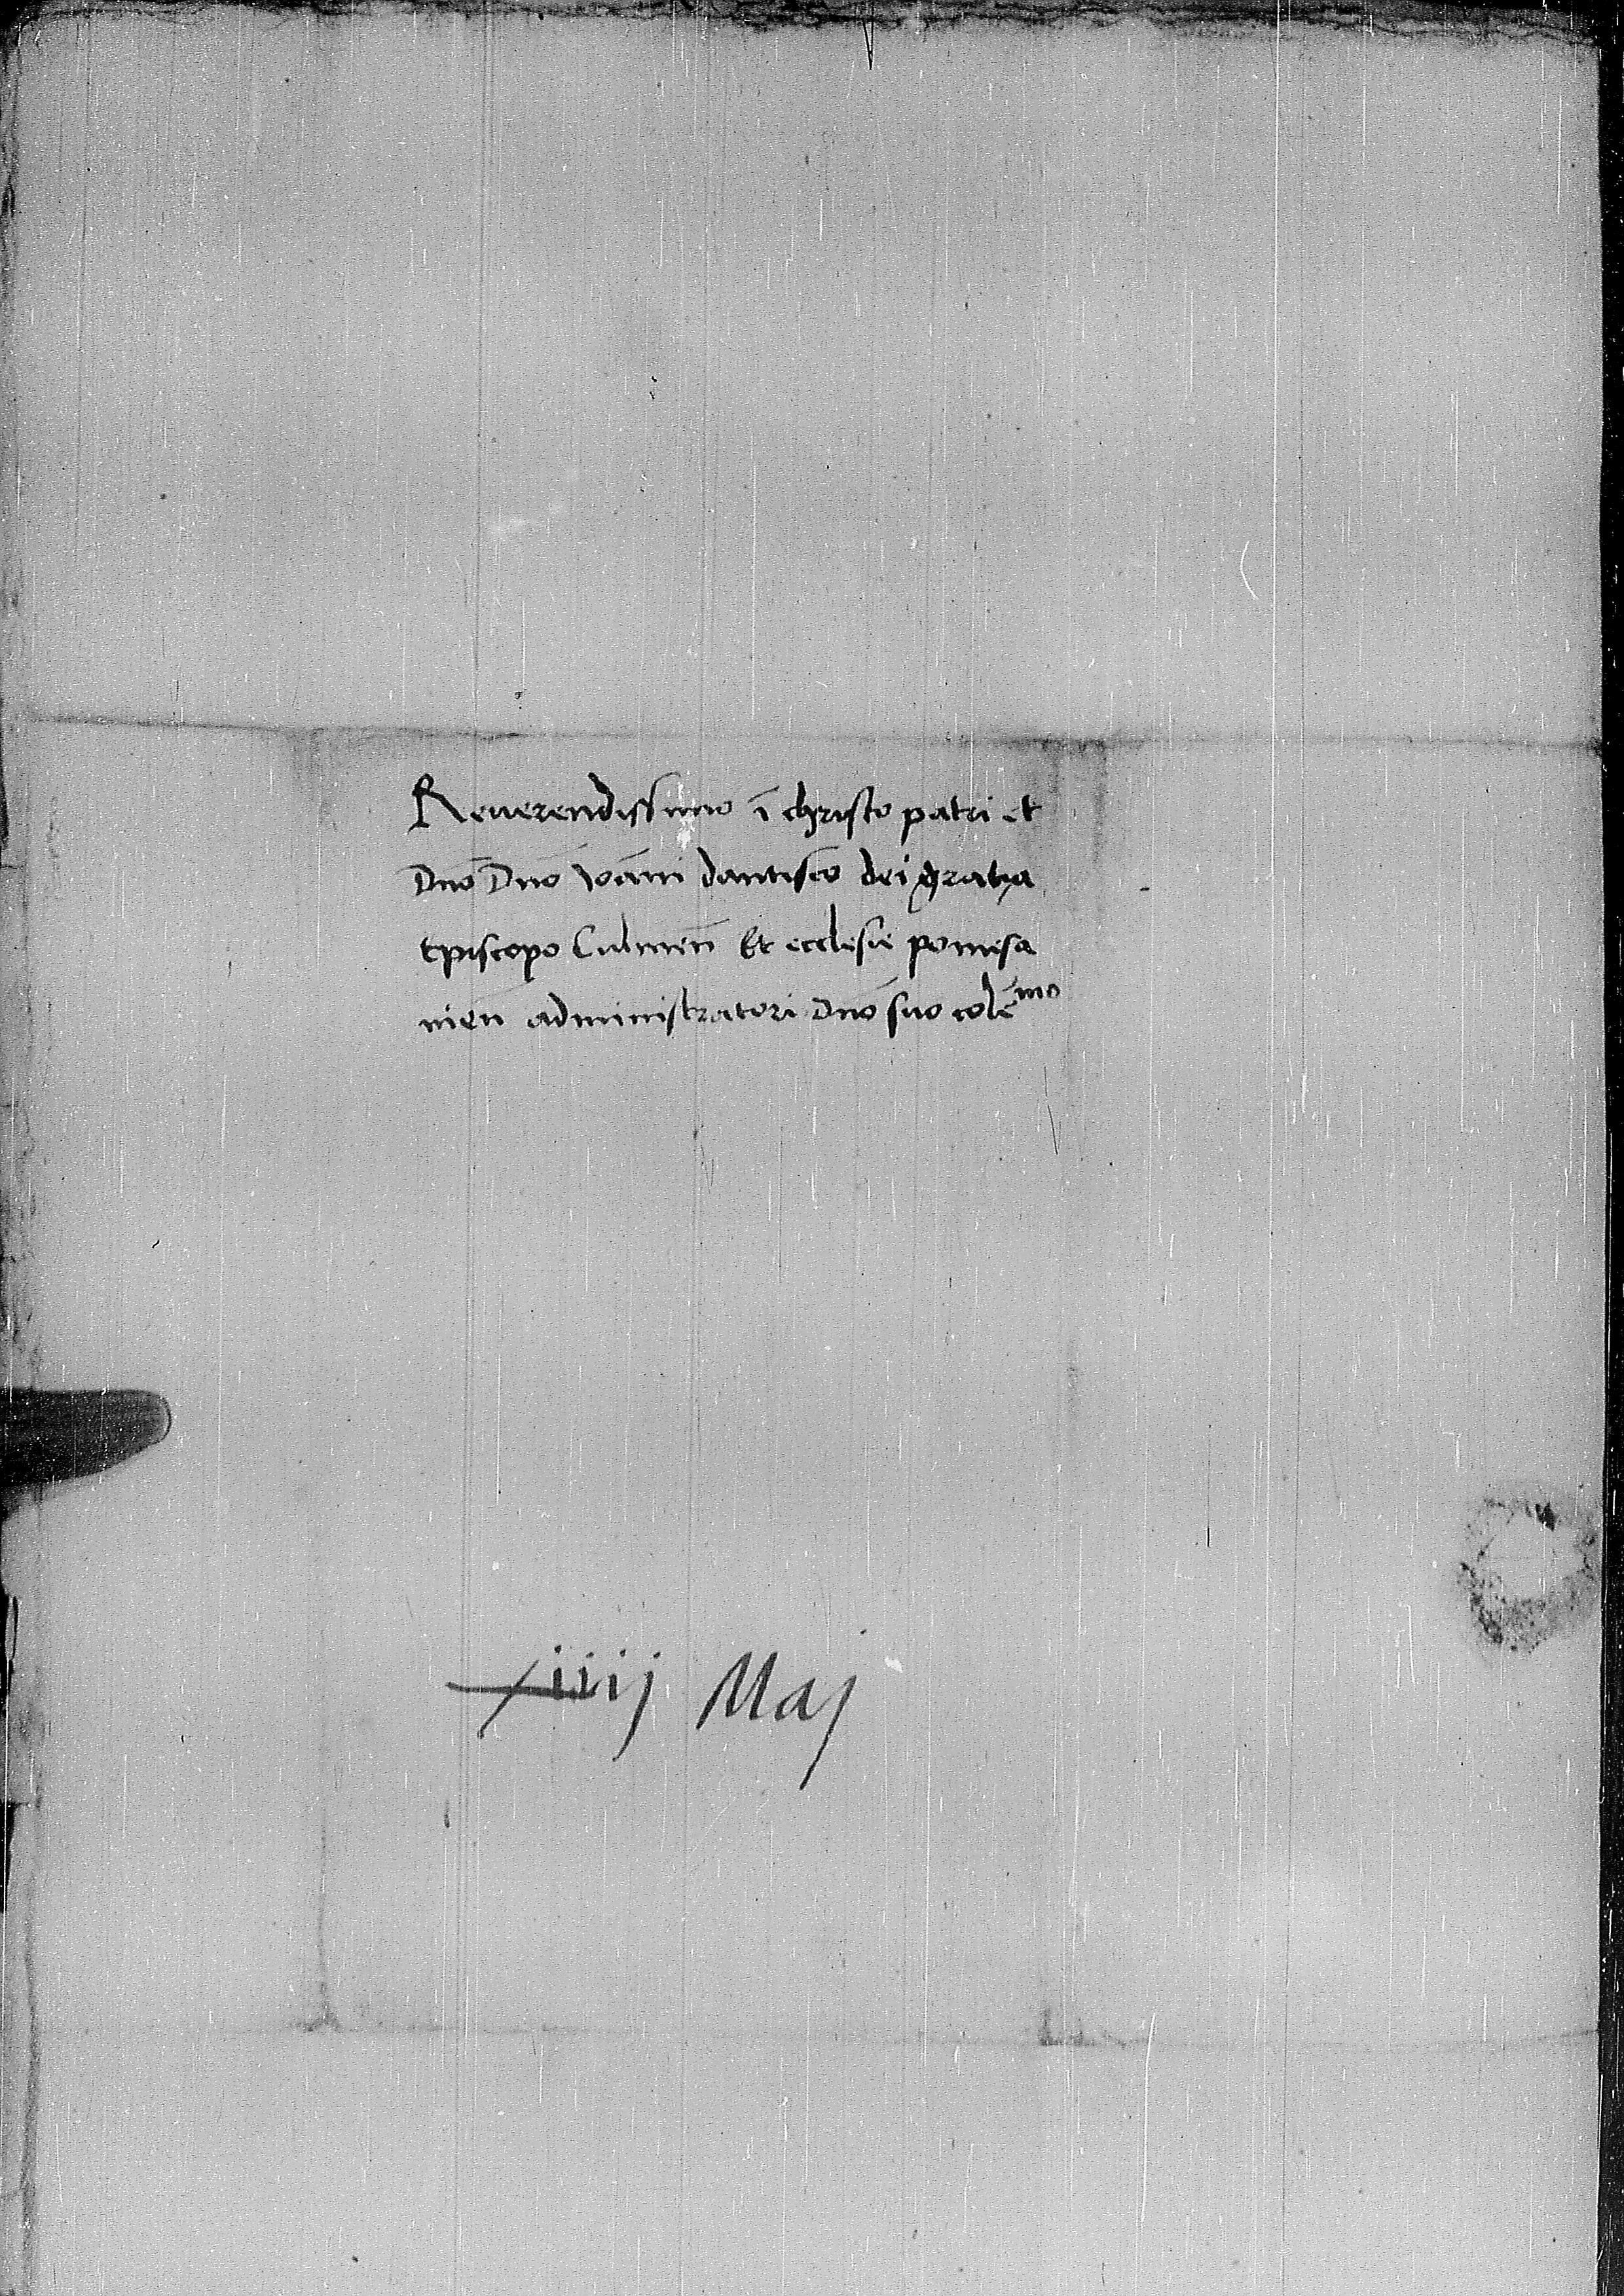 Reuerendissimo ī christo patri et
Dnō Dnō Ioāni dantisco dei gratia
Episcopo Culmen̄ Et ecclesie pomesa
nien̄ administratori Dnō suo colē^mo
xiiij Maj